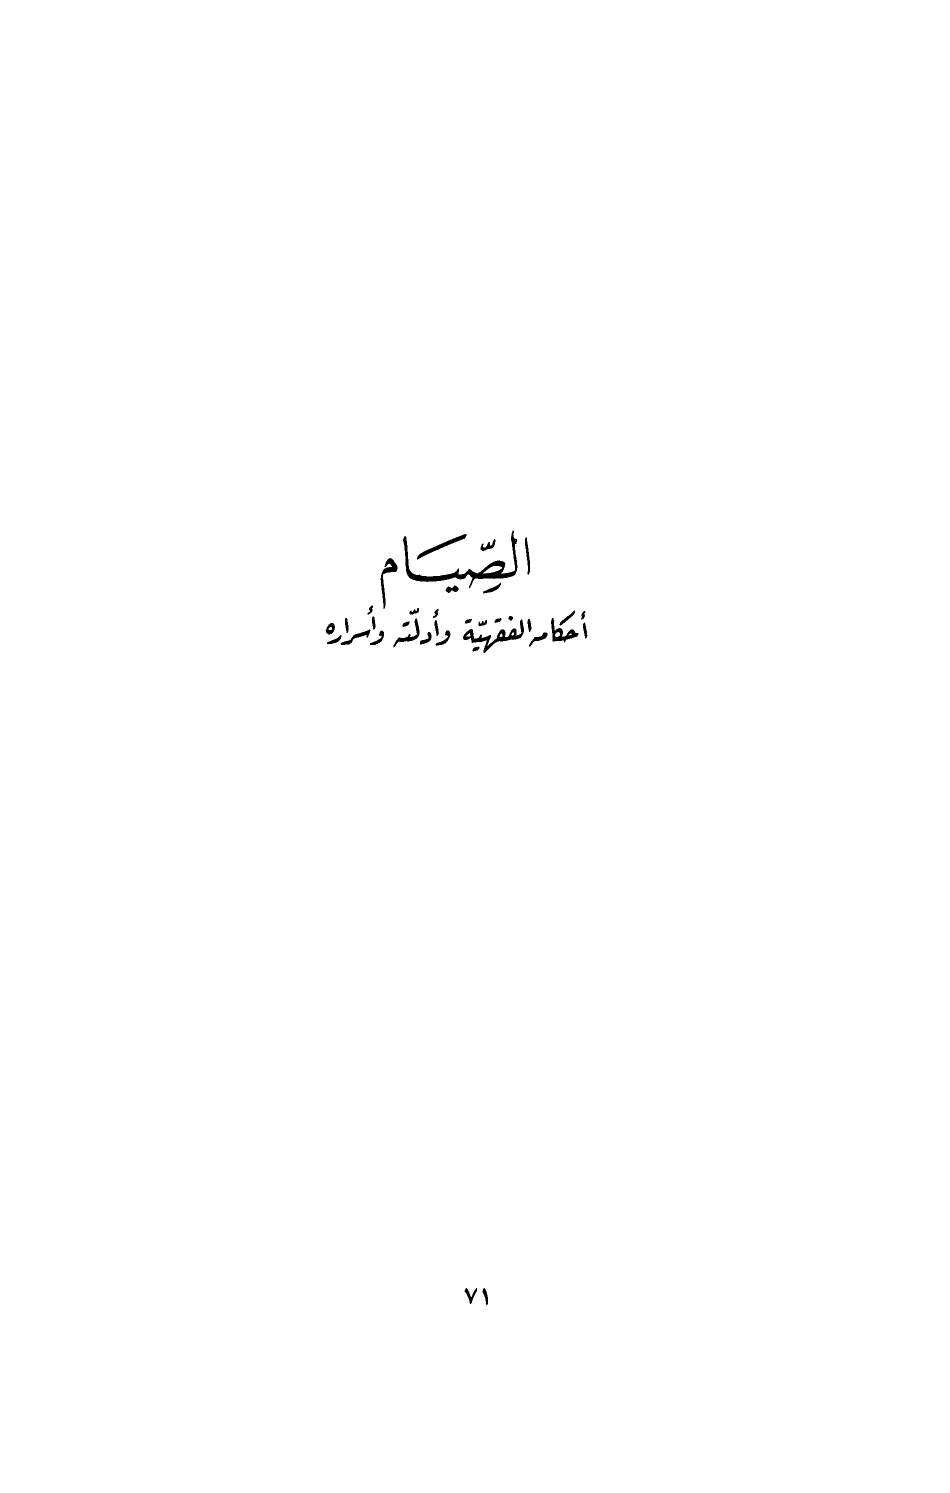 الصِّيَام
أحكامه الفقهيّة وأدلّته وأسراره
٧١